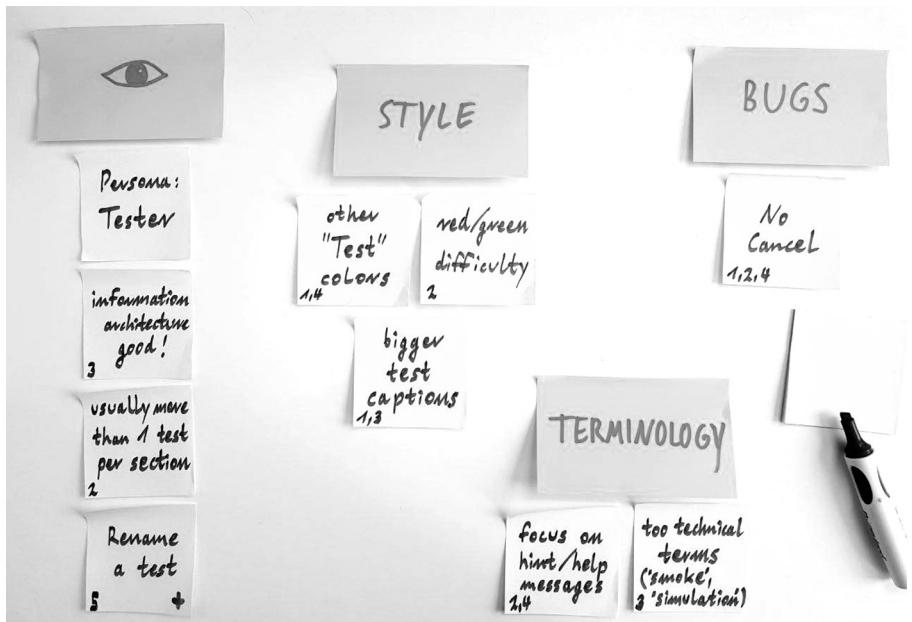 Persona:
Tester
information
architecture
good!
3
usually more
than 1 test
per section
2
Rename
a test
5 +
STYLE
other
"Test"
colors
1,4
red/green
difficulty
2
bigger
test
captions
1,3
TERMINOLOGY
focus on
hint/help
messages
2,4
too technical
terms
('smoke',
3 'simulation')
BUGS
No
Cancel
1,2,4